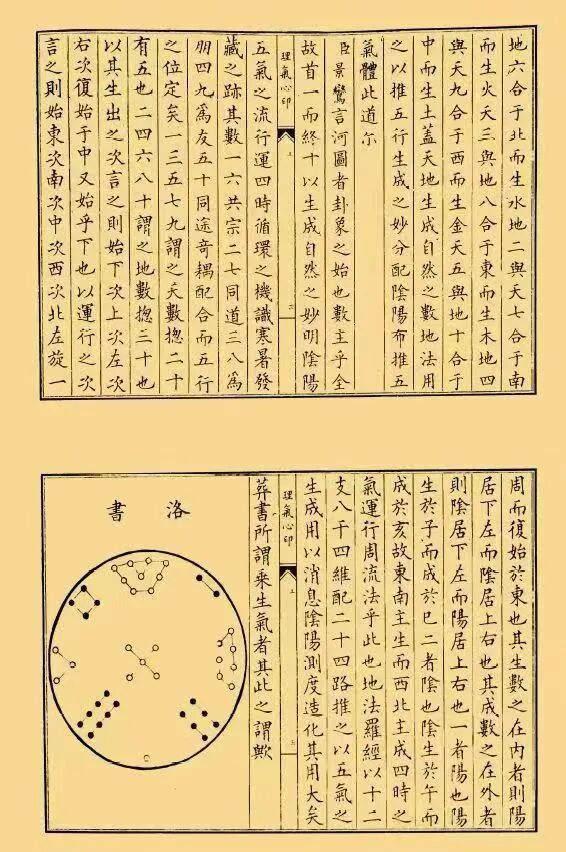 地六合于北而生水地二與天七合于南
而生火天三與地八合于東而生木地四
與天九合于西而生金天五與地十合于
中而生土蓋天地生成自然之數地法用
之以推五行生成之妙分配陰陽布推五
氣體此道尓
臣景鸞言河圖者卦象之始也數主乎全
故首一而終十以生成自然之妙明陰陽
理氣心印
上
五氣之流行運四時循環之機識寒暑發
藏之跡其數一六共宗二七同道三八為
朋四九為友五十同途奇耦配合而五行
之位定矣一三五七九謂之天數揔二十
有五也二四六八十謂之地數揔三十也
以其生出之次言之則始下次上次左次
右次復始于中又始乎下也以運行之次
言之則始東次南次中次西次北左旋一
周而復始於東也其生數之在内者則陽
居下左而陰居上右也其成數之在外者
則陰居下左而陽居上右也一者陽也陽
生於子而成於巳二者陰也陰生於午而
成於亥故東南主生而西北主成四時之
氣運行周流法乎此也地法羅經以十二
支八干四維配二十四路推之以五氣之
生成用以消息陰陽測度造化其用大矣
理氣心印
上
葬書所謂乘生氣者其此之謂歟
洛書